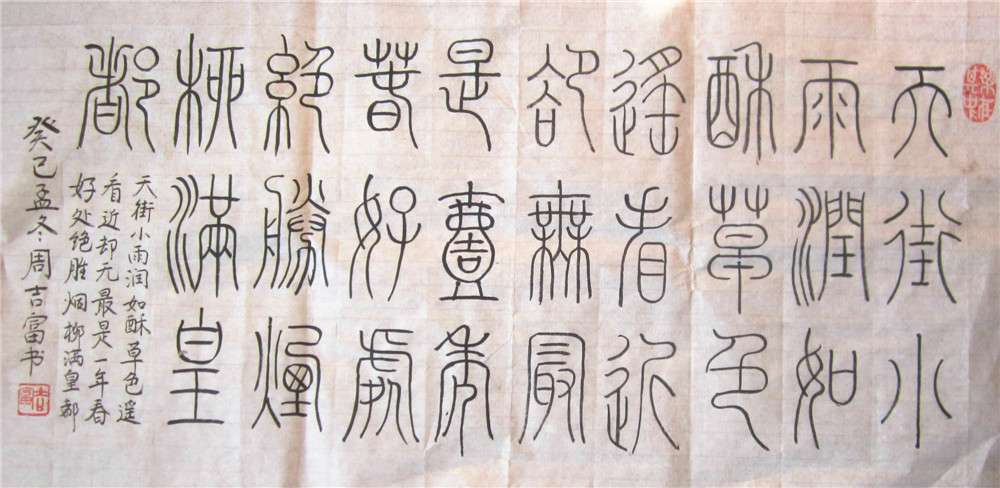 天街小
雨潤如
酥草色
遙看近
卻無最
是壹年
春好處
絕勝煙
柳滿皇
都
天街小雨润如酥草色遥
看近却无最是一年春
好处绝胜烟柳满皇都
癸巳孟冬周吉富书